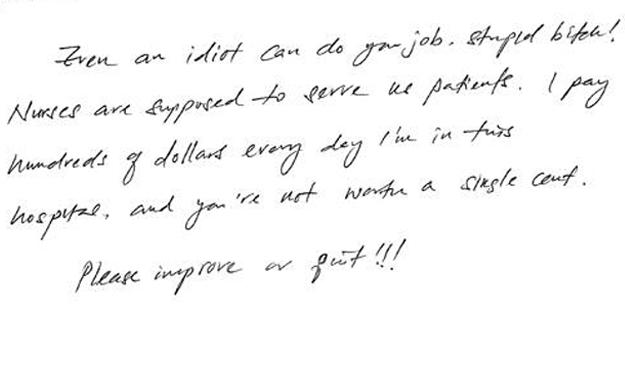 Even an idiot can do your job. stupid bitch!
Nurses are supposed to serve us patients. I pay
hundreds of dollars every day I'm in this
hospital, and you're not worth a single cent.
Please improve or quit!!!